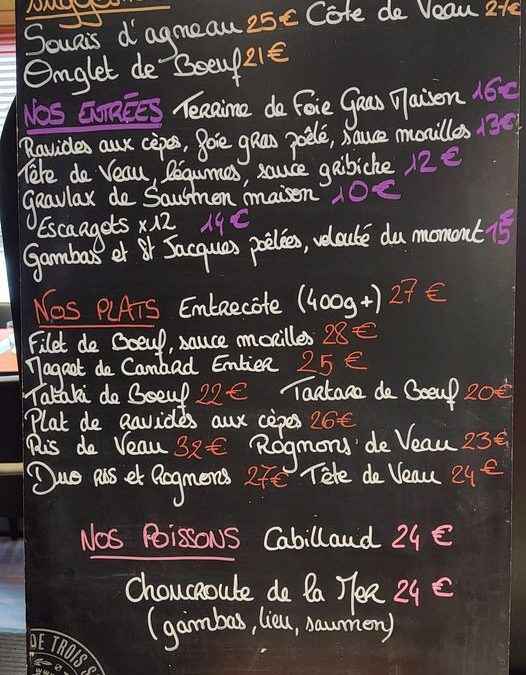 Souris d'agneau 25€ Côte de Veau 27€
Onglet de Boeuf 21€
NOS ENTRÉES Terrine de Foie Gras Maison 16€
Ravioles aux cèpes, foie gras poêlé, sauce morilles 13€
Tête de Veau, légumes, sauce gribiche 12€
Gravlax de Saumon maison 10€
Escargots x12 14€
Gambas et St Jacques poêlées, velouté du moment 15€
NOS PLATS Entrecôte (400g+) 27€
Filet de Boeuf, sauce morilles 28€
Magret de Canard Entier 25€
Tataki de Boeuf 22€ Tartare de Boeuf 20€
Plat de Ravioles aux cèpes 26€
Ris de Veau 32€ Rognons de Veau 23€
Duo Ris et Rognons 27€ Tête de Veau 24€
NOS POISSONS Cabillaud 24€
Choucroute de la Mer 24€
(gambas, lieu, saumon)
DE TROIS